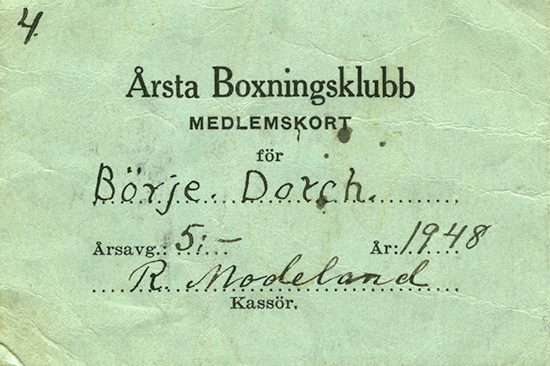 4
Årsta Boxningsklubb
MEDLEMSKORT
för
Börje. Dorch.
Årsavg.: 5:- År: 1948
R. Modeland
Kassör.